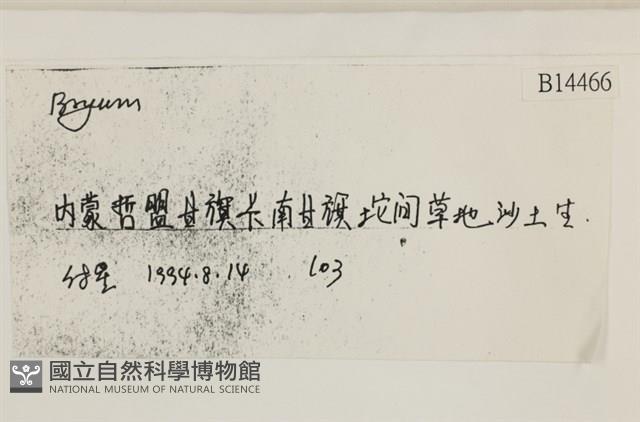 B14466
Bryum
内蒙哲盟甘旗卡南甘旗坨间草地沙土生.
1994.8.14 103
國立自然科學博物館
NATIONAL MUSEUM OF NATURAL SCIENCE